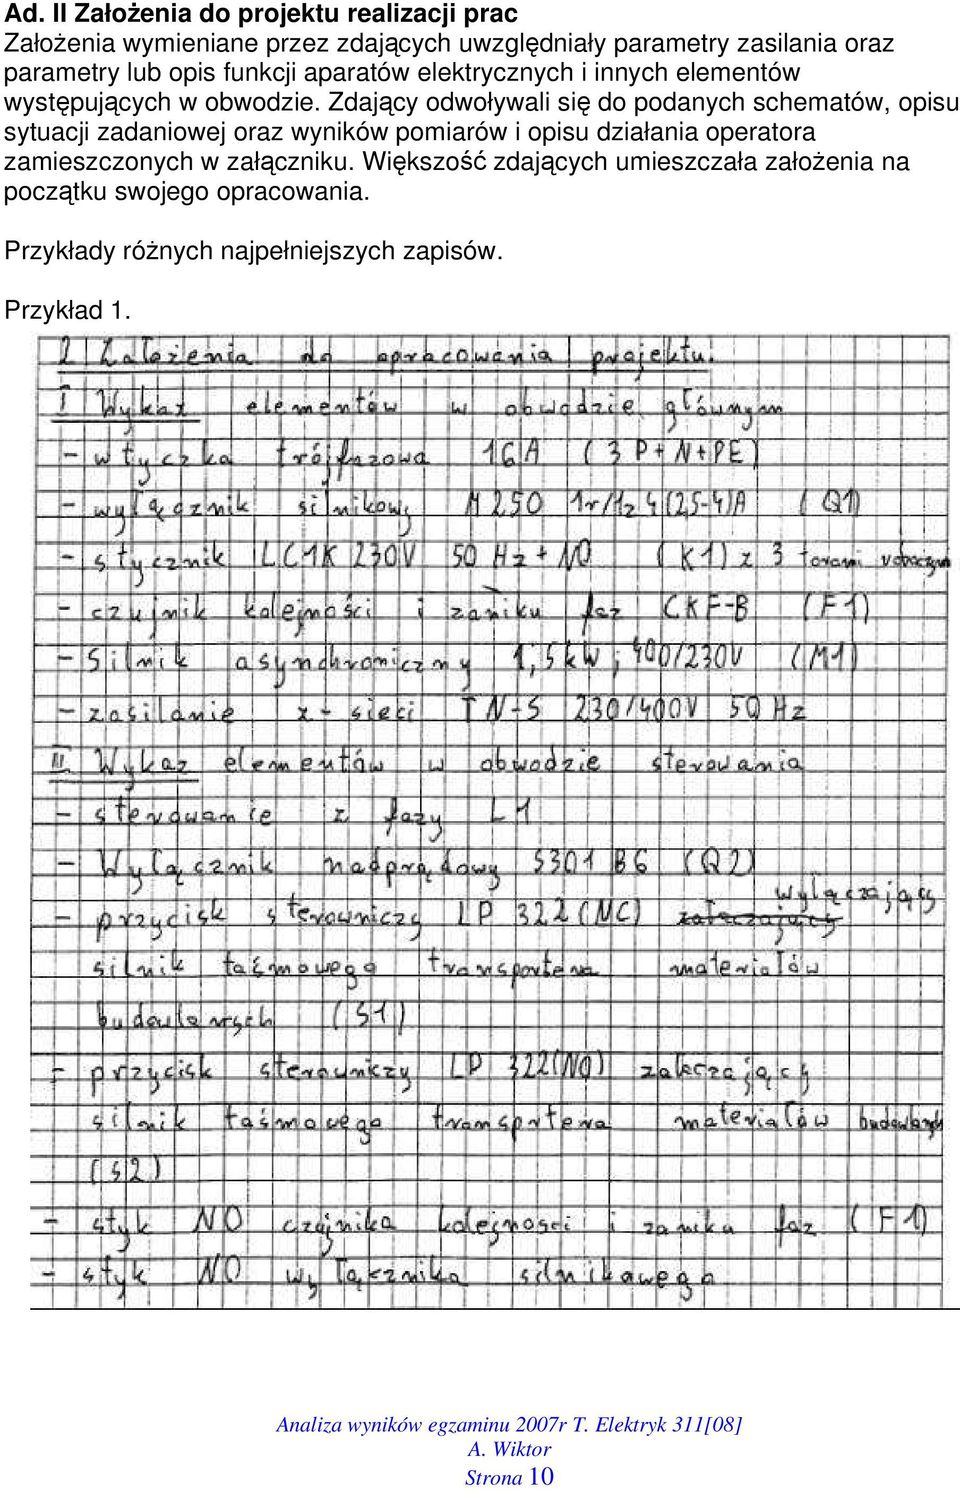 Ad. II Założenia do projektu realizacji prac
Założenia wymieniane przez zdających uwzględniały parametry zasilania oraz
parametry lub opis funkcji aparatów elektrycznych i innych elementów
występujących w obwodzie. Zdający odwoływali się do podanych schematów, opisu
sytuacji zadaniowej oraz wyników pomiarów i opisu działania operatora
zamieszczonych w załączniku. Większość zdających umieszczała założenia na
początku swojego opracowania.
Przykłady różnych najpełniejszych zapisów.
Przykład 1.
2 Założenia do opracowania projektu.
I Wykaz elementów w obwodzie głównym
- wtyczka trójfazowa 16A (3P+N+PE)
- wyłącznik silnikowy M250 (2,5-4)A (Q1)
- stycznik LC1K 230V 50 Hz + NO (K1) z 3 torami
- czujnik kolejności i zaniku faz CKF-B (F1)
- Silnik asynchroniczny 1,5kW; 400/230V (M1)
- zasilanie z sieci TN-S 230/400V 50 Hz
II Wykaz elementów w obwodzie sterowania
- sterowanie z fazy L1
- Wyłącznik nadprądowy S301 B6 (Q2)
- przycisk sterowniczy LP 322(NC) wyłączający
silnik taśmowego transportera materiałów
budowlanych (S1)
- przycisk sterowniczy LP 322(NO) załączający
silnik taśmowego transportera materiałów budowlanych
(S2)
- styk NO czujnika kolejnosci i zaniku faz (F1)
- styk NO wyłącznika silnikowego
Analiza wyników egzaminu 2007r T. Elektryk 311[08]
A. Wiktor
Strona 10